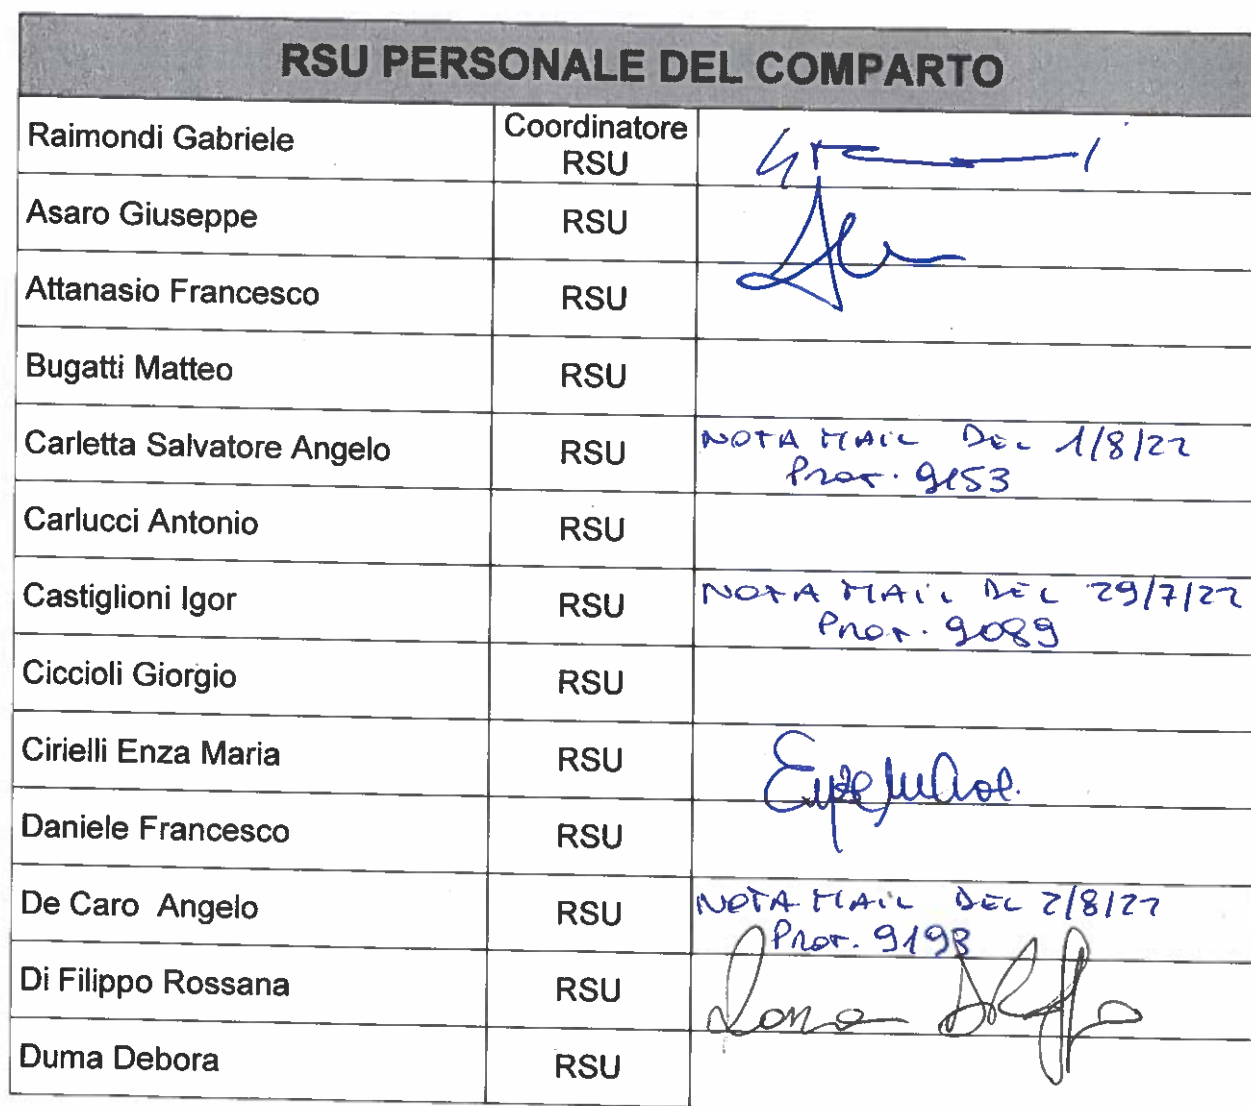 RSU PERSONALE DEL COMPARTO
Raimondi Gabriele Coordinatore RSU
Asaro Giuseppe RSU
Attanasio Francesco RSU
Bugatti Matteo RSU
Carletta Salvatore Angelo RSU NOTA MAIL DEL 1/8/22
Prot. 9153
Carlucci Antonio RSU
Castiglioni Igor RSU NOTA MAIL DEL 29/7/22
Prot. 9089
Ciccioli Giorgio RSU
Cirielli Enza Maria RSU
Daniele Francesco RSU
De Caro Angelo RSU NOTA MAIL DEL 2/8/22
Prot. 9193
Di Filippo Rossana RSU
Duma Debora RSU